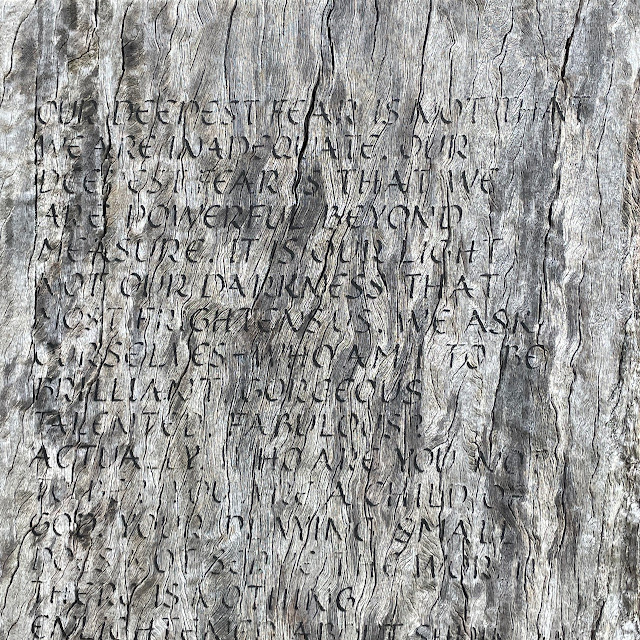 OUR DEEPEST FEAR IS NOT THAT
WE ARE INADEQUATE. OUR
DEEPEST FEAR IS THAT WE
ARE POWERFUL BEYOND
MEASURE. IT IS OUR LIGHT
NOT OUR DARKNESS THAT
MOST FRIGHTENS US. WE ASK
OURSELVES - WHO AM I TO BE
BRILLIANT, GORGEOUS
TALENTED, FABULOUS?
ACTUALLY, WHO ARE YOU NOT
TO BE? YOU ARE A CHILD OF
GOD. YOUR PLAYING SMALL
DOES NOT SERVE THE WORLD
THERE IS NOTHING
ENLIGHTENED ABOUT SHRINKING